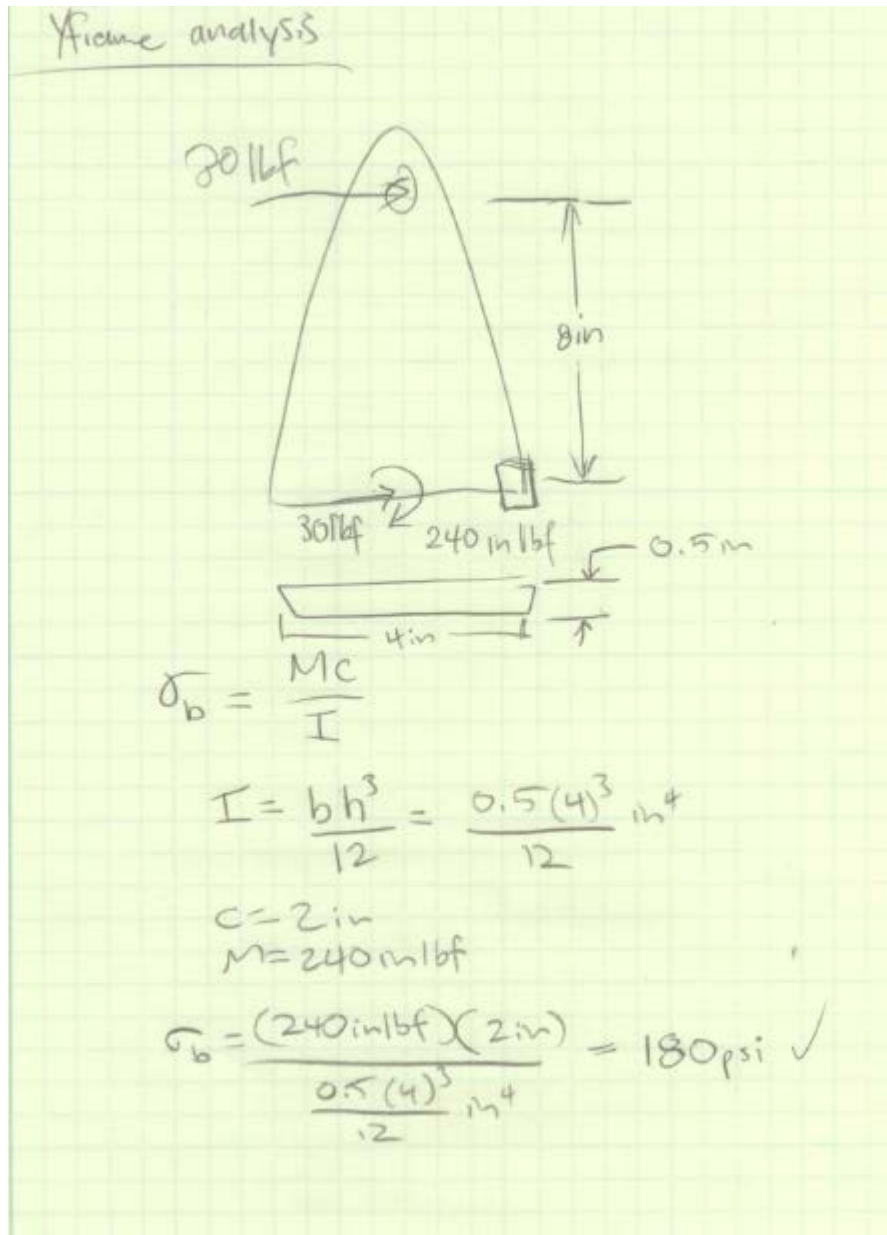 Yframe analysis
30lbf
8in
30lbf
240 in lbf
0.5in
4in
σb = Mc/I
I = bh³/12 = 0.5(4)³/12 in⁴
c=2in
M=240inlbf
σb = (240inlbf)(2in)/(0.5(4)³/12 in⁴) = 180psi ✓